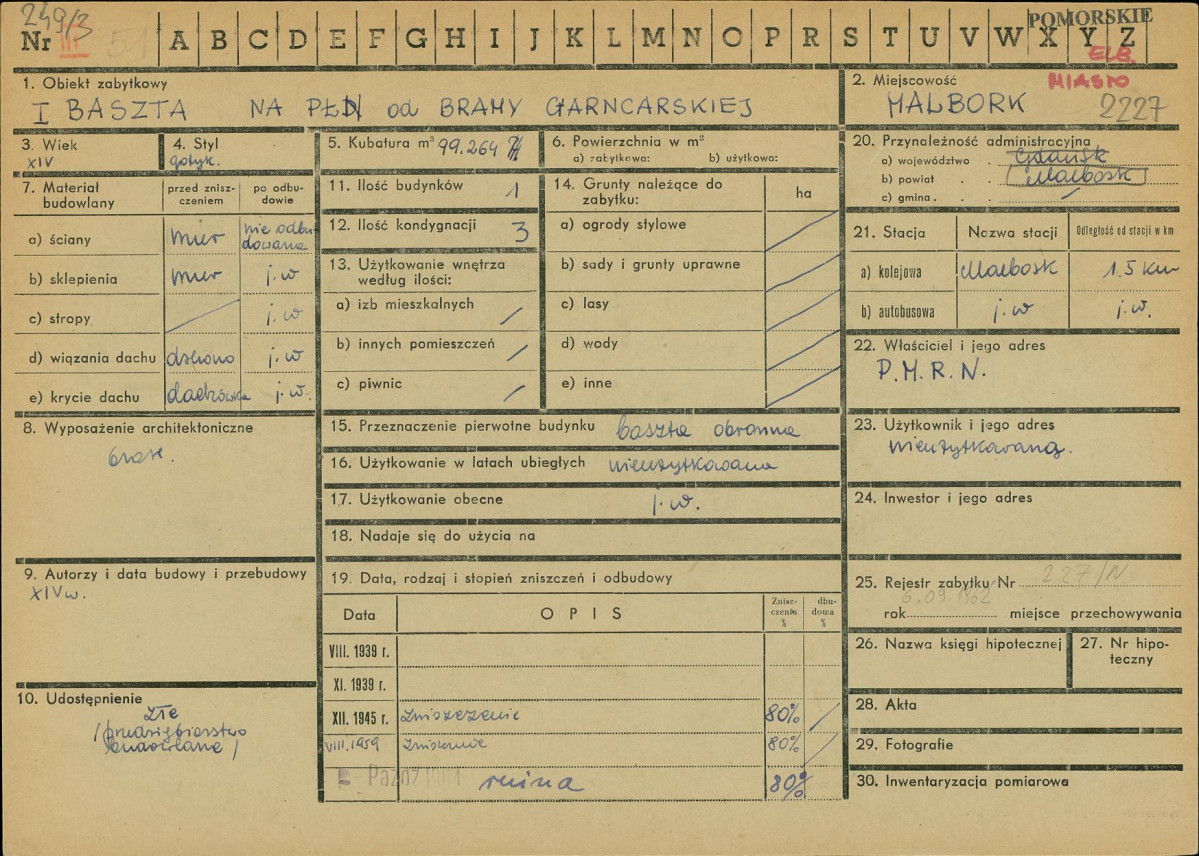 249/3
Nr III 51 A B C D E F G H I J K L M N O P R S T U V W X Y Z
POMORSKIE
ELB.
1. Obiekt zabytkowy
I BASZTA NA PŁD od BRAMY GARNCARSKIEJ
2. Miejscowość MIASTO
MALBORK 2227
3. Wiek
XIV
4. Styl
gotyk.
5. Kubatura m³ 99.264
6. Powierzchnia w m²
a) zabytkowa: b) użytkowa:
7. Materiał budowlany
przed zniszczeniem
po odbudowie
a) ściany mur nie odbudowana
b) sklepienia mur j.w
c) stropy j.w
d) wiązania dachu drewno j.w
e) krycie dachu dachówka j.w.
8. Wyposażenie architektoniczne
brak.
9. Autorzy i data budowy i przebudowy
XIV w.
10. Udostępnienie
złe
/przedsiębiorstwo
budowlane/
11. Ilość budynków 1
12. Ilość kondygnacji 3
13. Użytkowanie wnętrza
według ilości:
a) izb mieszkalnych /
b) innych pomieszczeń /
c) piwnic /
14. Grunty należące do
zabytku: ha
a) ogrody stylowe
b) sady i grunty uprawne
c) lasy
d) wody
e) inne
15. Przeznaczenie pierwotne budynku baszta obronna
16. Użytkowanie w latach ubiegłych nieużytkowana
17. Użytkowanie obecne j.w.
18. Nadaje się do użycia na
19. Data, rodzaj i stopień zniszczeń i odbudowy
Data OPIS Zniszczenia % dbudowa %
VIII. 1939 r.
XI. 1939 r.
XII. 1945 r. Zniszczenie 80% /
VIII.1959 Zniszczenie 80% /
ruina 80%
20. Przynależność administracyjna
a) województwo Gdańsk
b) powiat Malbork
c) gmina
21. Stacja Nazwa stacji Odległość od stacji w km
a) kolejowa Malbork 1.5 km
b) autobusowa j.w j.w.
22. Właściciel i jego adres
P.M.R.N.
23. Użytkownik i jego adres
nieużytkowaną.
24. Inwestor i jego adres
25. Rejestr zabytku Nr 227/N
6.09.1962
rok miejsce przechowywania
26. Nazwa księgi hipotecznej
27. Nr hipoteczny
28. Akta
29. Fotografie
30. Inwentaryzacja pomiarowa